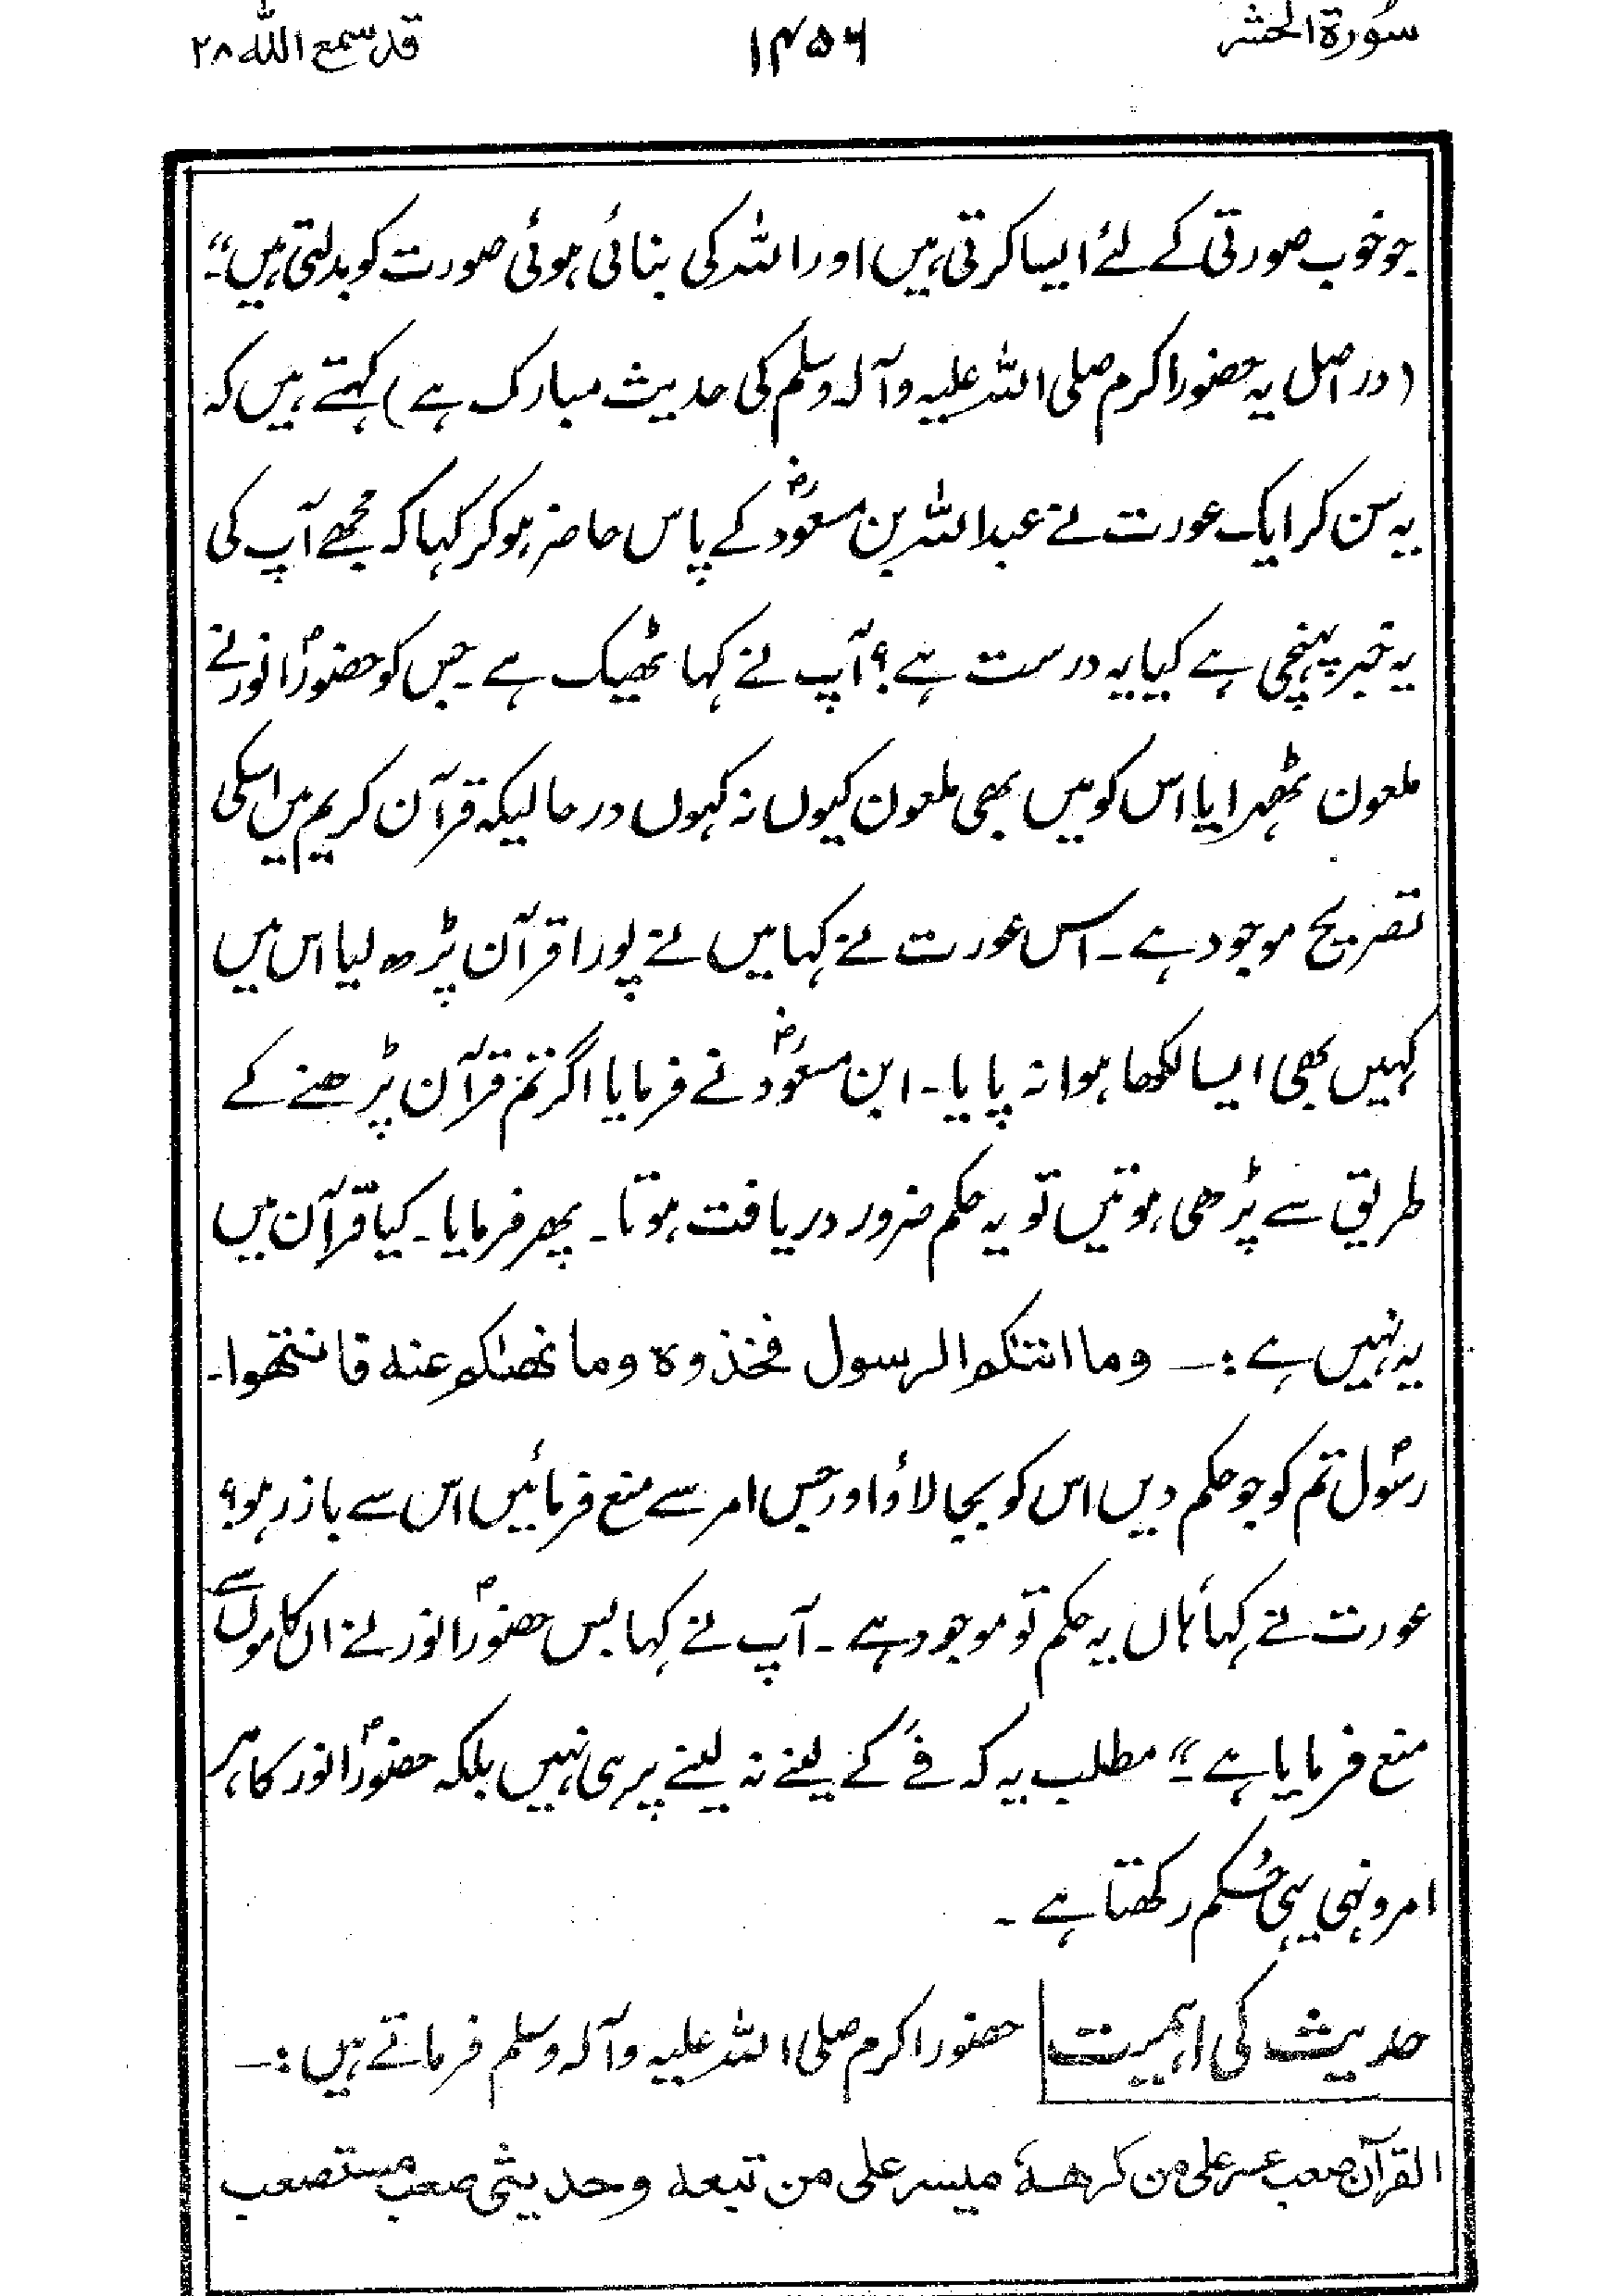 سُورة الحشر ۱۴۵۶ قد سمع اللہ ۲۸
جو خوب صورتی کے لئے ایسا کرتی ہیں اور اللہ کی بنائی ہوئی صورت کو بدلتی ہیں"۔
(در اصل یہ حضور اکرم صلی اللہ علیہ وآلہ وسلم کی حدیث مبارک ہے) کہتے ہیں کہ
یہ سن کر ایک عورت نے عبداللہ بن مسعودؓ کے پاس حاضر ہو کر کہا کہ مجھے آپ کی
یہ خبر پہنچی ہے کیا یہ درست ہے؟ آپ نے کہا ٹھیک ہے۔ جس کو حضورؐ انور نے
ملعون ٹھہرایا اس کو میں بھی ملعون کیوں نہ کہوں درحالیکہ قرآن کریم میں اسکی
تصریح موجود ہے۔ اس عورت نے کہا میں نے پورا قرآن پڑھ لیا اس میں
کہیں بھی ایسا لکھا ہوا نہ پایا۔ ابن مسعودؓ نے فرمایا اگر تم قرآن پڑھنے کے
طریق سے پڑھی ہوتیں تو یہ حکم ضرور دریافت ہوتا۔ پھر فرمایا۔ کیا قرآن میں
یہ نہیں ہے :۔ وما اتٰکم الرسول فخذوہ وما نھٰکم عنہ فانتھوا۔
رسُولؐ تم کو جو حکم دیں اس کو بجا لاؤ اور جس امر سے منع فرمائیں اس سے باز رہو؟
عورت نے کہا ہاں یہ حکم تو موجود ہے۔ آپ نے کہا بس حضورؐ انور نے ان کاموں سے
منع فرمایا ہے"۔ مطلب یہ کہ فے کے لینے نہ لینے پر ہی نہیں بلکہ حضورؐ انور کا ہر
امر و نہی یہی حُکم رکھتا ہے۔
حدیث کی اہمیت حضور اکرم صلی اللہ علیہ وآلہ وسلم فرماتے ہیں :۔
القرآن صعب عسر علی من کرھہ میسر علی من تبعہ وحدیثی صعب مستصعب